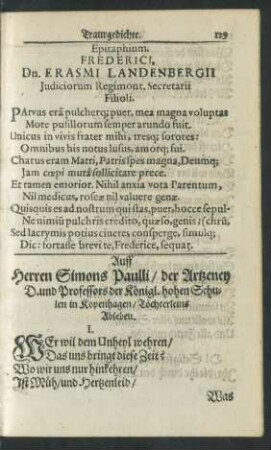 Traurgedichte. 129
Epitaphium.
FREDERICI,
Dn. ERASMI LANDENBERGII
Judiciorum Regimont, Secretarii
Filioli.
PArvus erā pulcherq; puer, mea magna voluptas
More pusillorum semper arundo fuit.
Unicus in vivis frater mihi, tresq; sorores:
Omnibus his notus lusus, amorq; fui.
Charus eram Matri, Patris spes magna, Deumq;
Jam cœpi mutâ sollicitare prece.
Et ramen emorior. Nihil anxia vota Parentum,
Nil medicus, roseæ nil valuere genæ.
Quisquis es ad nostrum qui stas, puer, hocce sepul-
Ne nimiū pulchris credito, quæso, genis: (chrū,
Sed lacrymis potius cineres consperge, simulq;
Dic: fortasse brevi te, Frederice, sequar.
Auff
Herren Simons Paulli / der Artzeney
D. und Professors der Königl. hohen Schu-
len in Kopenhagen / Töchterleins
Ableben.
I.
WEr wil dem Unheyl wehren /
Das uns bringt diese Zeit?
Wo wir uns nur hinkehren /
Ist Müh / und Hertzenleid /
Was